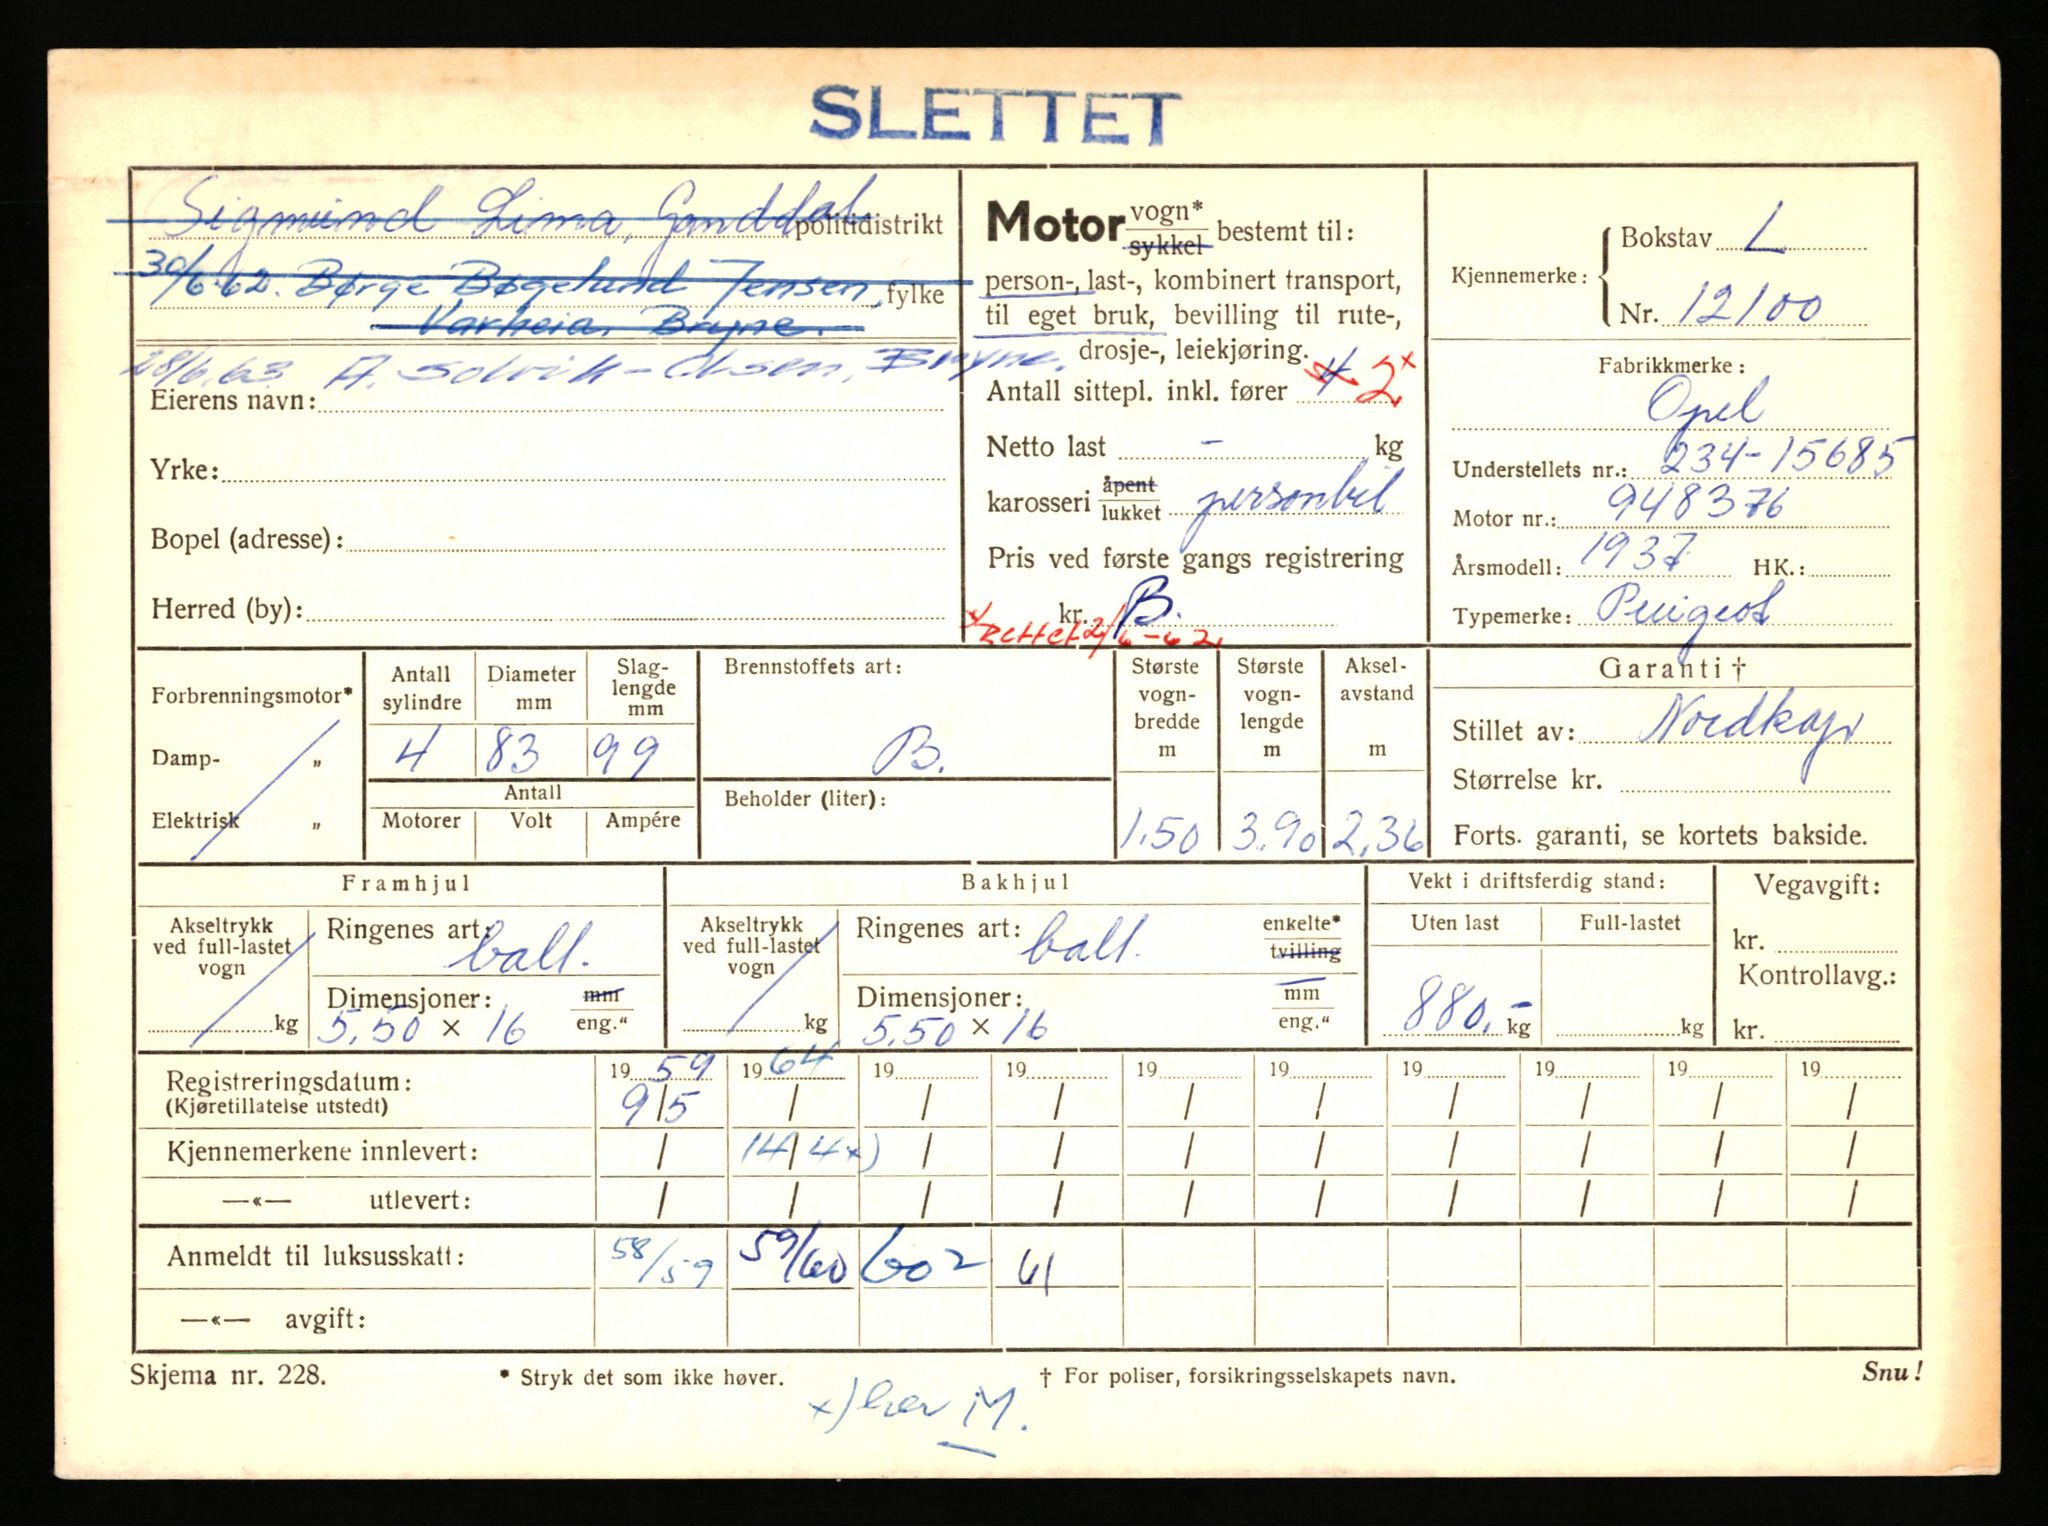 SLETTET
Sigmund Lima, Ganddal politidistrikt
30/6.62. Børge Bøgelund Jensen, fylke
Varheia, Bryne.
28/6.63. A. Solvik-Olsen, Bryne.
Eierens navn:
Yrke:
Bopel (adresse):
Herred (by):
Motor vogn* sykkel bestemt til:
person-, last-, kombinert transport,
til eget bruk, bevilling til rute-,
drosje-, leiekjøring.
Antall sittepl. inkl. fører 4 2x
Netto last - kg
karosseri åpent lukket personbil
Pris ved første gangs registrering
kr. B.
x/ Rettet 2/6-62
Kjennemerke: Bokstav L
Nr. 12100
Fabrikkmerke:
Opel
Understellets nr.: 234-15685
Motor nr.: 948376
Årsmodell: 1937 HK.:
Typemerke: Peugeot
Forbrenningsmotor*
Damp- „
Elektrisk „
Antall sylindre Diameter mm Slag-lengde mm
4 83 99
Antall
Motorer Volt Ampére
Brennstoffets art:
B.
Beholder (liter):
Største vogn-bredde m Største vogn-lengde m Aksel-avstand m
1.50 3.90 2,36
Garanti †
Stillet av: Nordkap
Størrelse kr.
Forts. garanti, se kortets bakside.
Framhjul
Akseltrykk ved full-lastet vogn
kg
Ringenes art: ball.
Dimensjoner: mm eng."
5,50 × 16
Bakhjul
Akseltrykk ved full-lastet vogn
kg
Ringenes art: ball. enkelte* tvilling
Dimensjoner: mm eng."
5,50 × 16
Vekt i driftsferdig stand:
Uten last Full-lastet
880,- kg kg
Vegavgift:
kr.
Kontrollavg.:
kr.
Registreringsdatum: 19 59 19 64 19 19 19 19 19 19 19 19
(Kjøretillatelse utstedt) 9/5 / / / / / / / / /
Kjennemerkene innlevert: / 14/4 x) / / / / / / / /
—«— utlevert: / / / / / / / / / /
Anmeldt til luksusskatt: 58/59 59/60 602 61
—«— avgift:
Skjema nr. 228. * Stryk det som ikke høver. † For poliser, forsikringsselskapets navn. Snu!
x) her M.